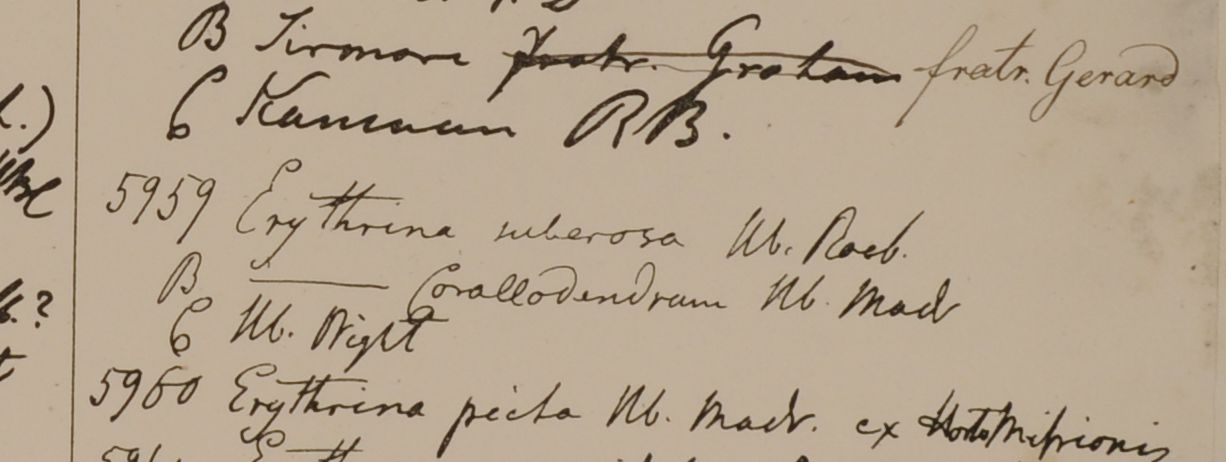 B Sirmore fratr. Graham fratr. Gerard
C Kamaun RB.
5959 Erythrina suberosa Hb. Roxb.
B ——— Corallodendrum Hb. Madr
C Hb. Wight
5960 Erythrina picta Hb. Madr. ex Horto Missionis